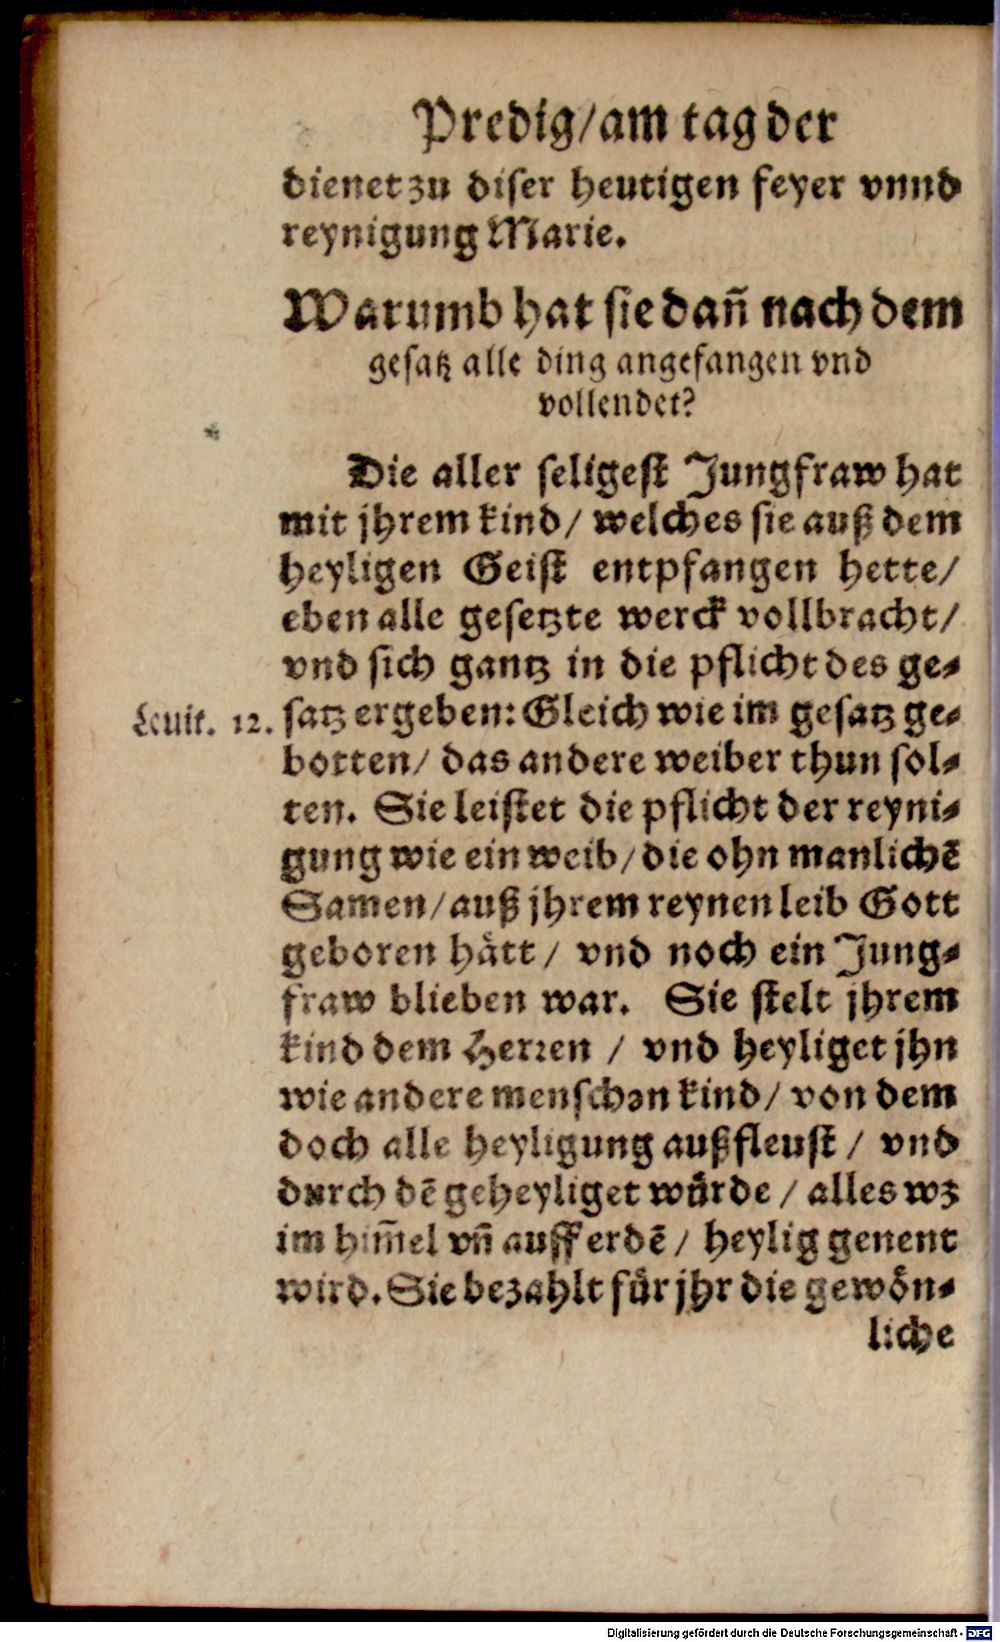 Predig/am tag der
dienet zu diser heutigen feyer vnnd
reynigung Marie.
Warumb hat sie dañ nach dem
gesatz alle ding angefangen vnd
vollendet?
Die aller seligest Jungfraw hat
mit jhrem kind/ welches sie auß dem
heyligen Geist entpfangen hette/
eben alle gesetzte werck vollbracht/
vnd sich gantz in die pflicht des ge-
Leuit. 12. satz ergeben: Gleich wie im gesatz ge-
botten/ das andere weiber thun sol-
ten. Sie leistet die pflicht der reyni-
gung wie ein weib/die ohn manlichẽ
Samen/auß jhrem reynen leib Gott
geboren haͤtt/ vnd noch ein Jung-
fraw blieben war. Sie stelt jhrem
kind dem Herren / vnd heyliget jhn
wie andere menschen kind/ von dem
doch alle heyligung außfleust / vnd
durch dẽ geheyliget wuͤrde / alles wz
im him̃el vñ auff erdẽ/ heylig genent
wird. Sie bezahlt fuͤr jhr die gewoͤn-
liche
Digitalisierung gefördert durch die Deutsche Forschungsgemeinschaft - DFG